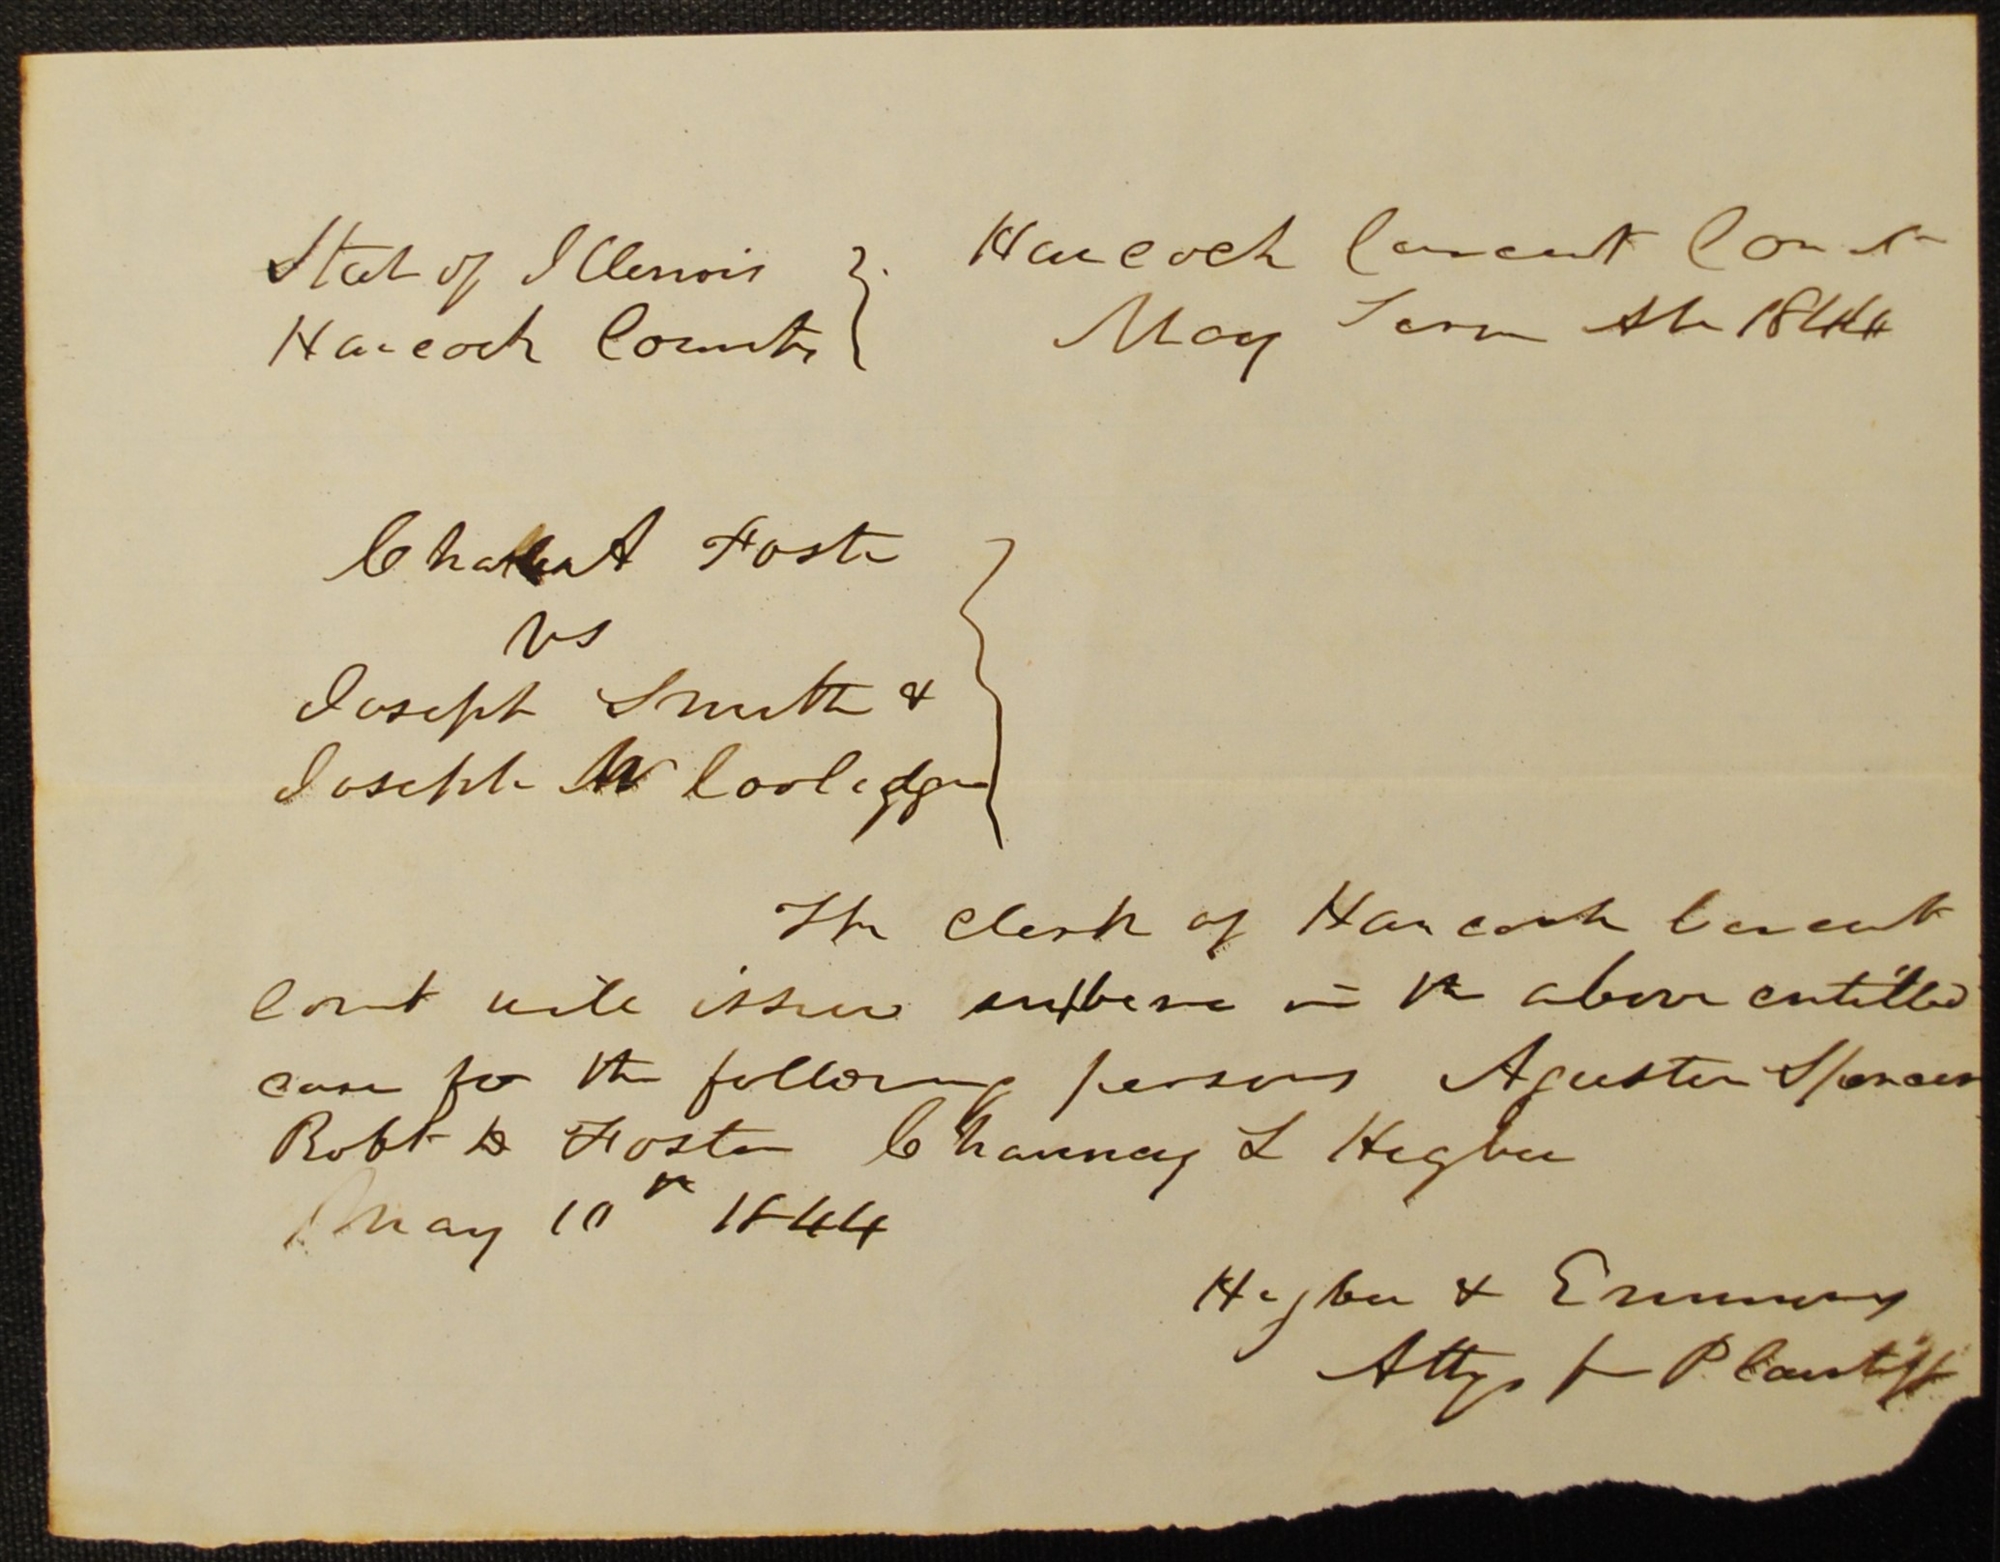 State of Illinois } Hancock Circuit Court
Hancock County } May Term 1844
Charles A Foster
vs
Joseph Smith &
Joseph W Coolidge
The clerk of Hancock Circuit
Court will issue subpena in the above entitled
case for the following persons Agustin Spencer
Robt D Foster Chauncey L Higbee
May 10th 1844
Higbee & Emmons
Attys for Plaintiff